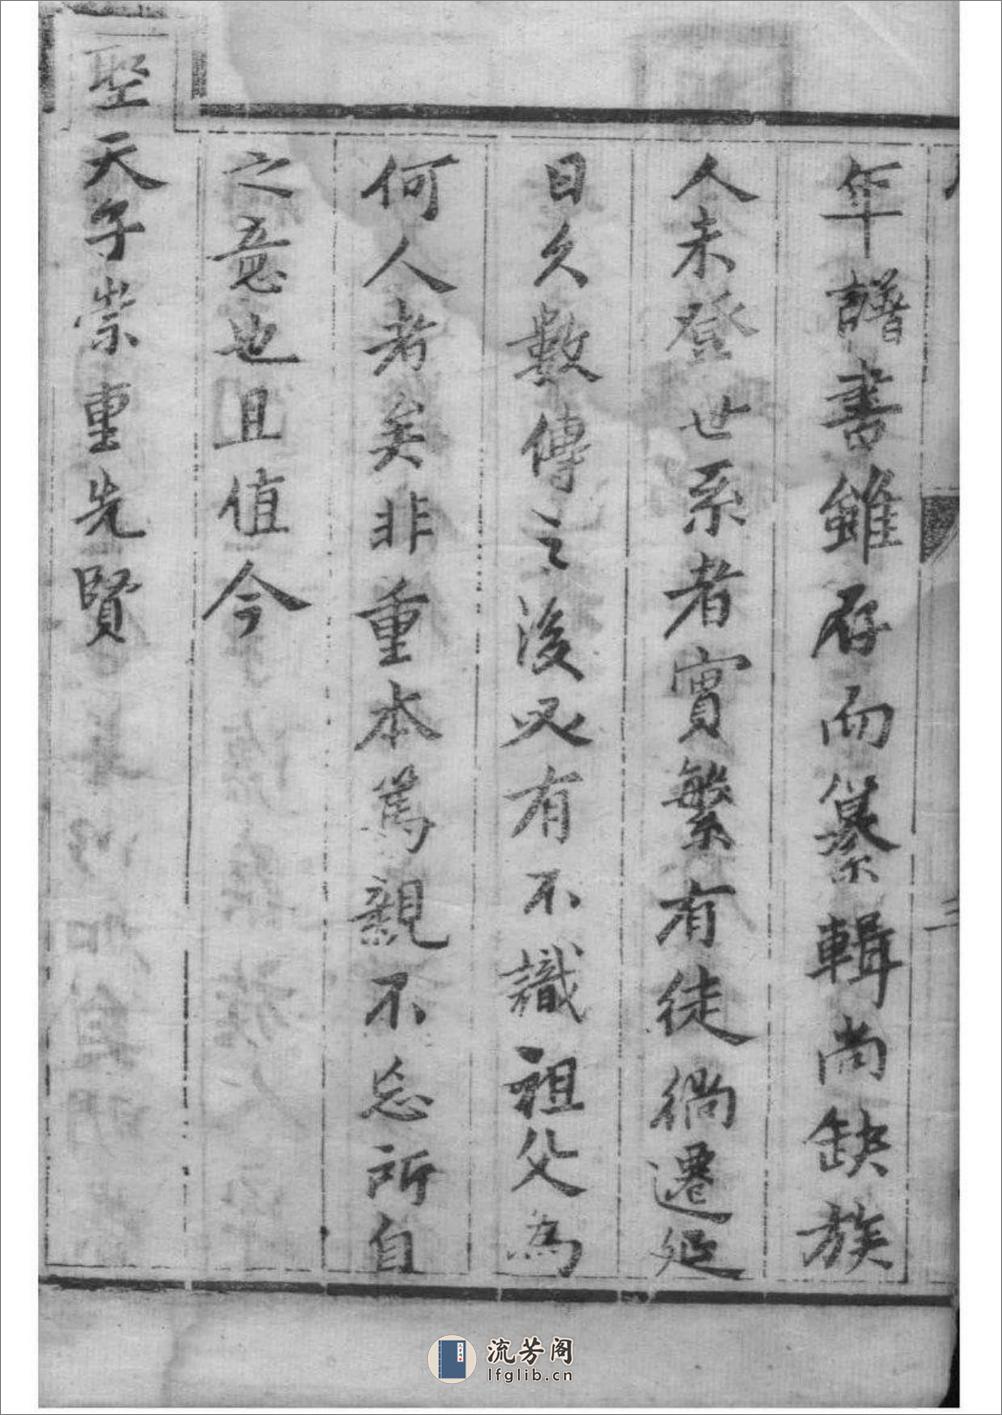 年譜書雖存而纂輯尚缺族
人未登世系者實繁有徒徜遷延
日久數傳之後必有不識祖父為
何人者矣非重本篤親不忘所自
之意也且值今
聖天子崇重先賢
流芳阁
lfglib.cn